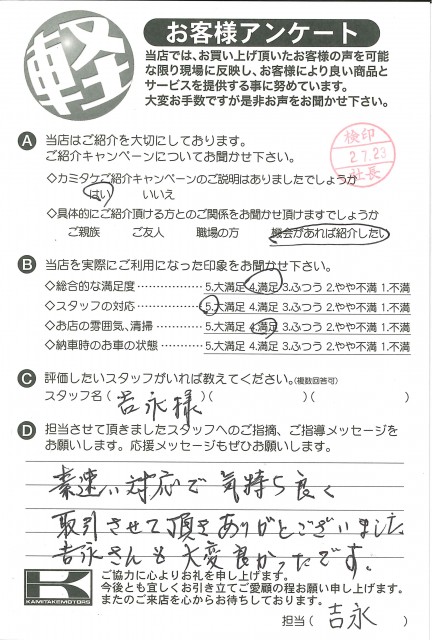 軽
お客様アンケート
当店では、お買い上げ頂いたお客様の声を可能
な限り現場に反映し、お客様により良い商品と
サービスを提供する事に努めています。
大変お手数ですが是非お声をお聞かせ下さい。
A 当店はご紹介を大切にしております。
ご紹介キャンペーンについてお聞かせ下さい。
検印
2.7.23
社長
◇カミタケご紹介キャンペーンのご説明はありましたでしょうか
はい いいえ
◇具体的にご紹介頂ける方とのご関係をお聞かせ頂けますでしょうか
ご親族 ご友人 職場の方 機会があれば紹介したい
B 当店を実際にご利用になった印象をお聞かせ下さい。
◇総合的な満足度 5.大満足 4.満足 3.ふつう 2.やや不満 1.不満
◇スタッフの対応 5.大満足 4.満足 3.ふつう 2.やや不満 1.不満
◇お店の雰囲気、清掃 5.大満足 4.満足 3.ふつう 2.やや不満 1.不満
◇納車時のお車の状態 5.大満足 4.満足 3.ふつう 2.やや不満 1.不満
C 評価したいスタッフがいれば教えてください。(複数回答可)
スタッフ名 ( 吉永様 )( )( )
D 担当させて頂きましたスタッフへのご指摘、ご指導メッセージを
お願いします。応援メッセージもぜひお願いします。
素速い対応で気持ち良く
取引させて頂きありがとございました
吉永さんも大変良かったです。
K
KAMITAKEMOTORS
ご協力に心よりお礼を申し上げます。
今後とも宜しくお引き立てご愛顧の程お願い申し上げます。
またのご来店を心からお待ちしております。
担当 ( 吉永 )